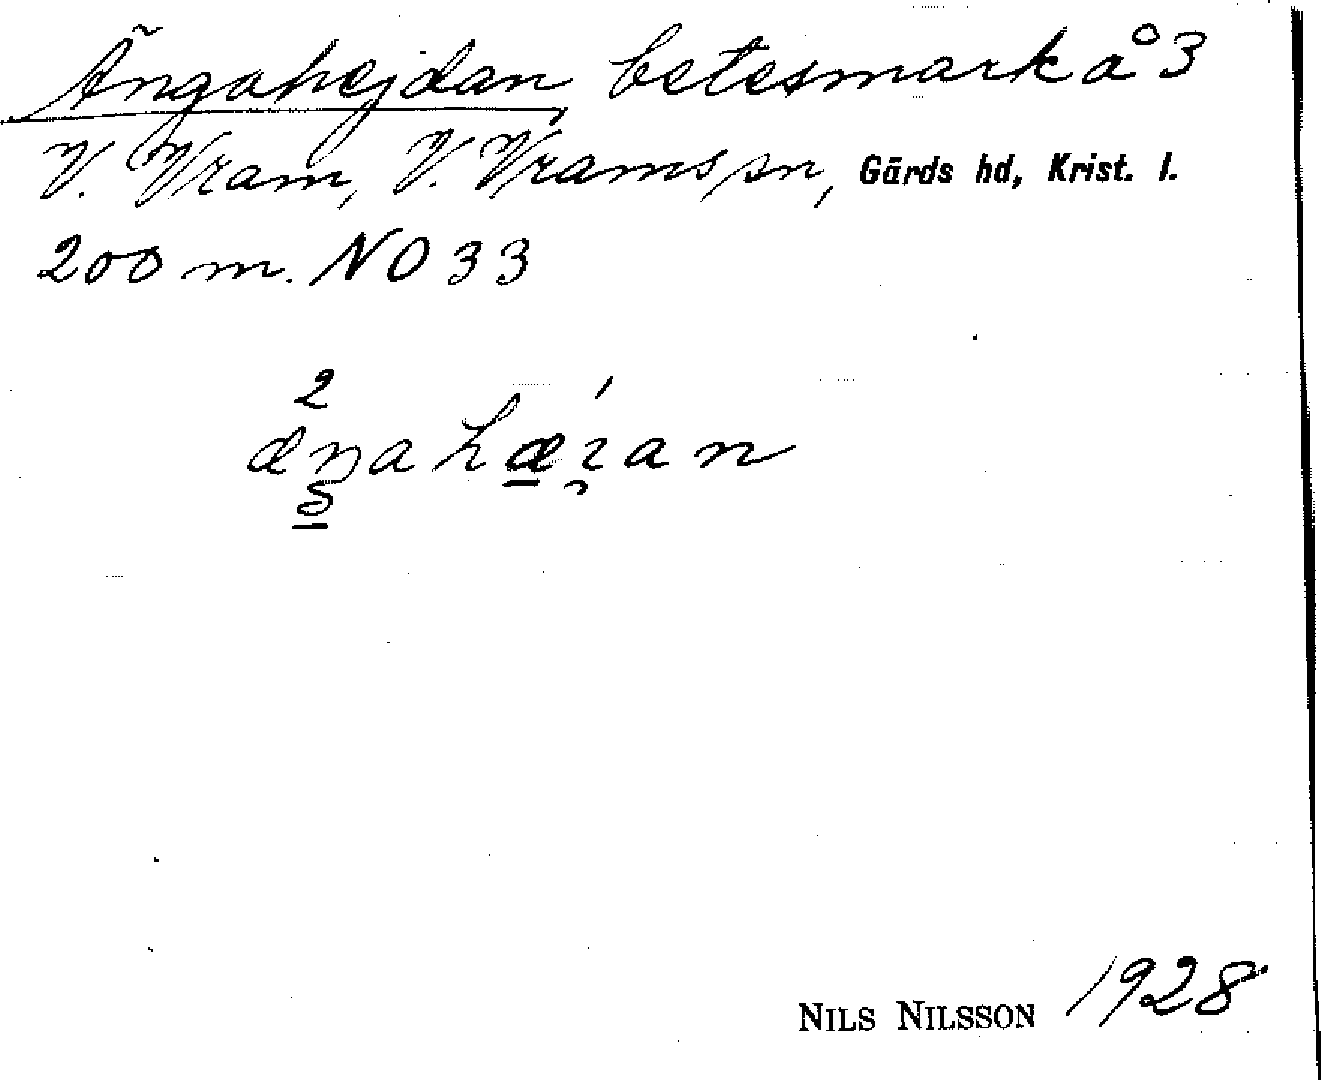 Ängahejdan betesmark å 3
V. Vram, V. Vrams sn, Gärds hd, Krist. l.
200 m. NO 33
2
æŋahæi̯an
NILS NILSSON 1928